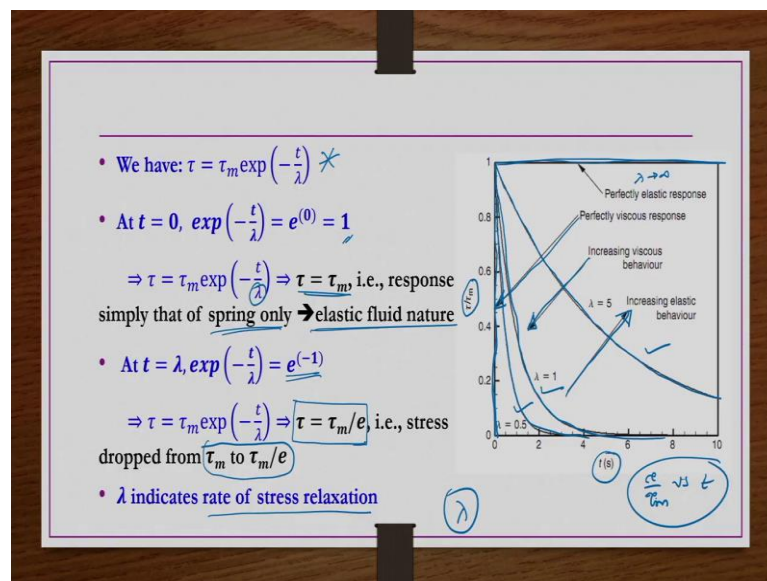 • We have: τ = τ_m exp(−t/λ) *
• At t = 0, exp(−t/λ) = e^(0) = 1
⇒ τ = τ_m exp(−t/λ) ⇒ τ = τ_m, i.e., response
simply that of spring only ➔ elastic fluid nature
• At t = λ, exp(−t/λ) = e^(−1)
⇒ τ = τ_m exp(−t/λ) ⇒ τ = τ_m/e, i.e., stress
dropped from τ_m to τ_m/e
• λ indicates rate of stress relaxation
λ
1
0.8
0.6
0.4
0.2
0
τ/τ_m
λ → ∞
Perfectly elastic response
Perfectly viscous response
Increasing viscous
behaviour
λ = 5
Increasing elastic
behaviour
λ = 1
λ = 0.5
0 2 4 6 8 10
t (s)
τ/τ_m vs t